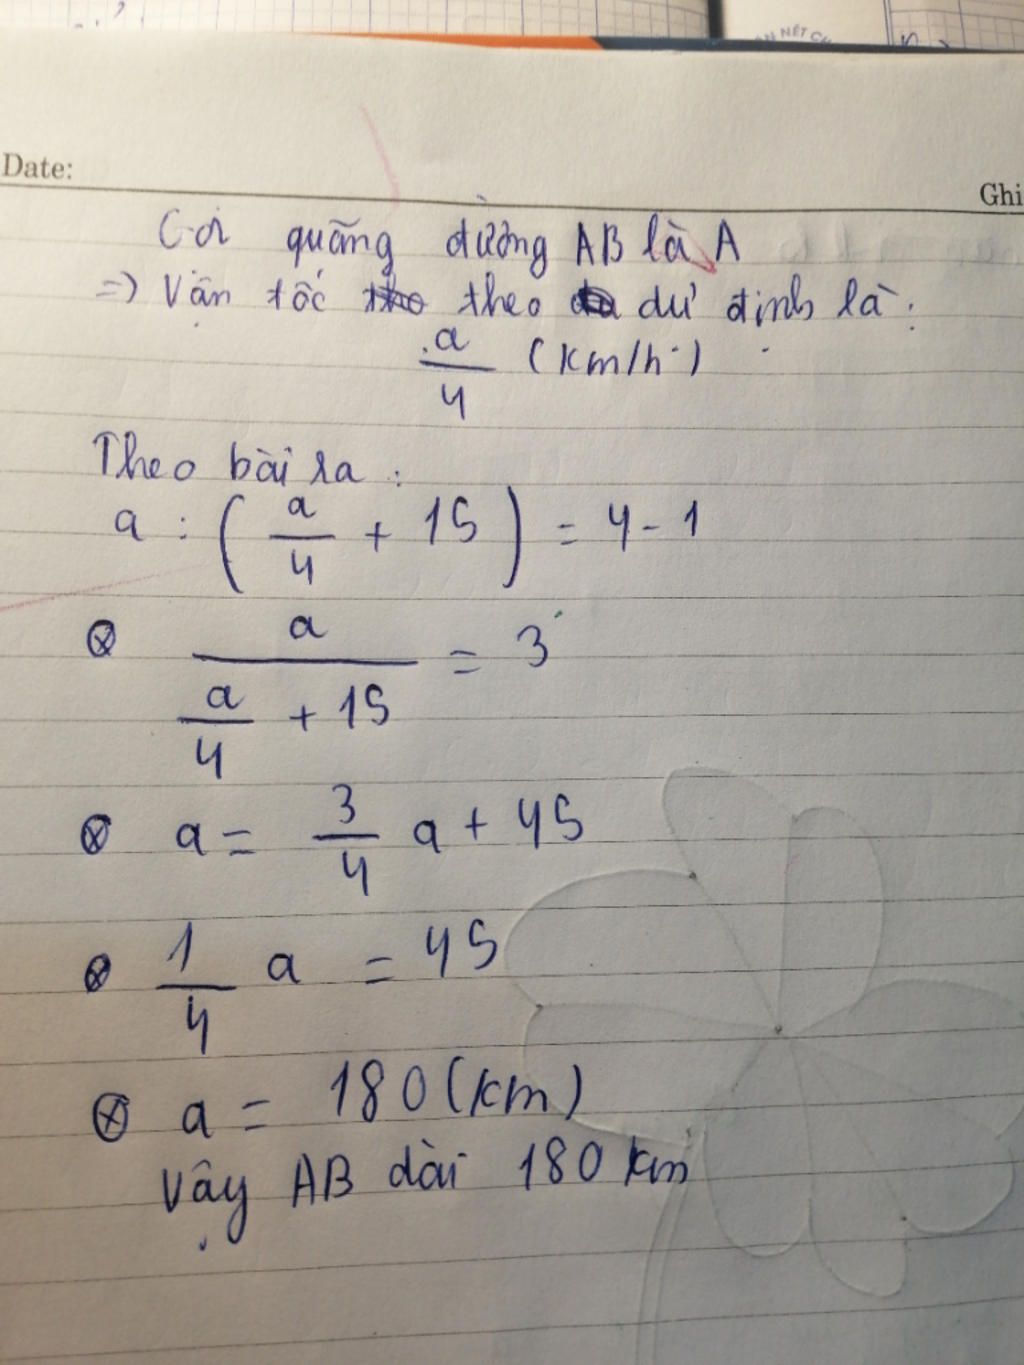 Date:
Ghi
Gọi quãng đường AB là A
=> Vận tốc theo dự định là:
a/4 (km/h)
Theo bài ra:
a : (a/4 + 15) = 4 - 1
a/(a/4 + 15) = 3
a = 3/4 a + 45
1/4 a = 45
a = 180 (km)
Vậy AB dài 180 km